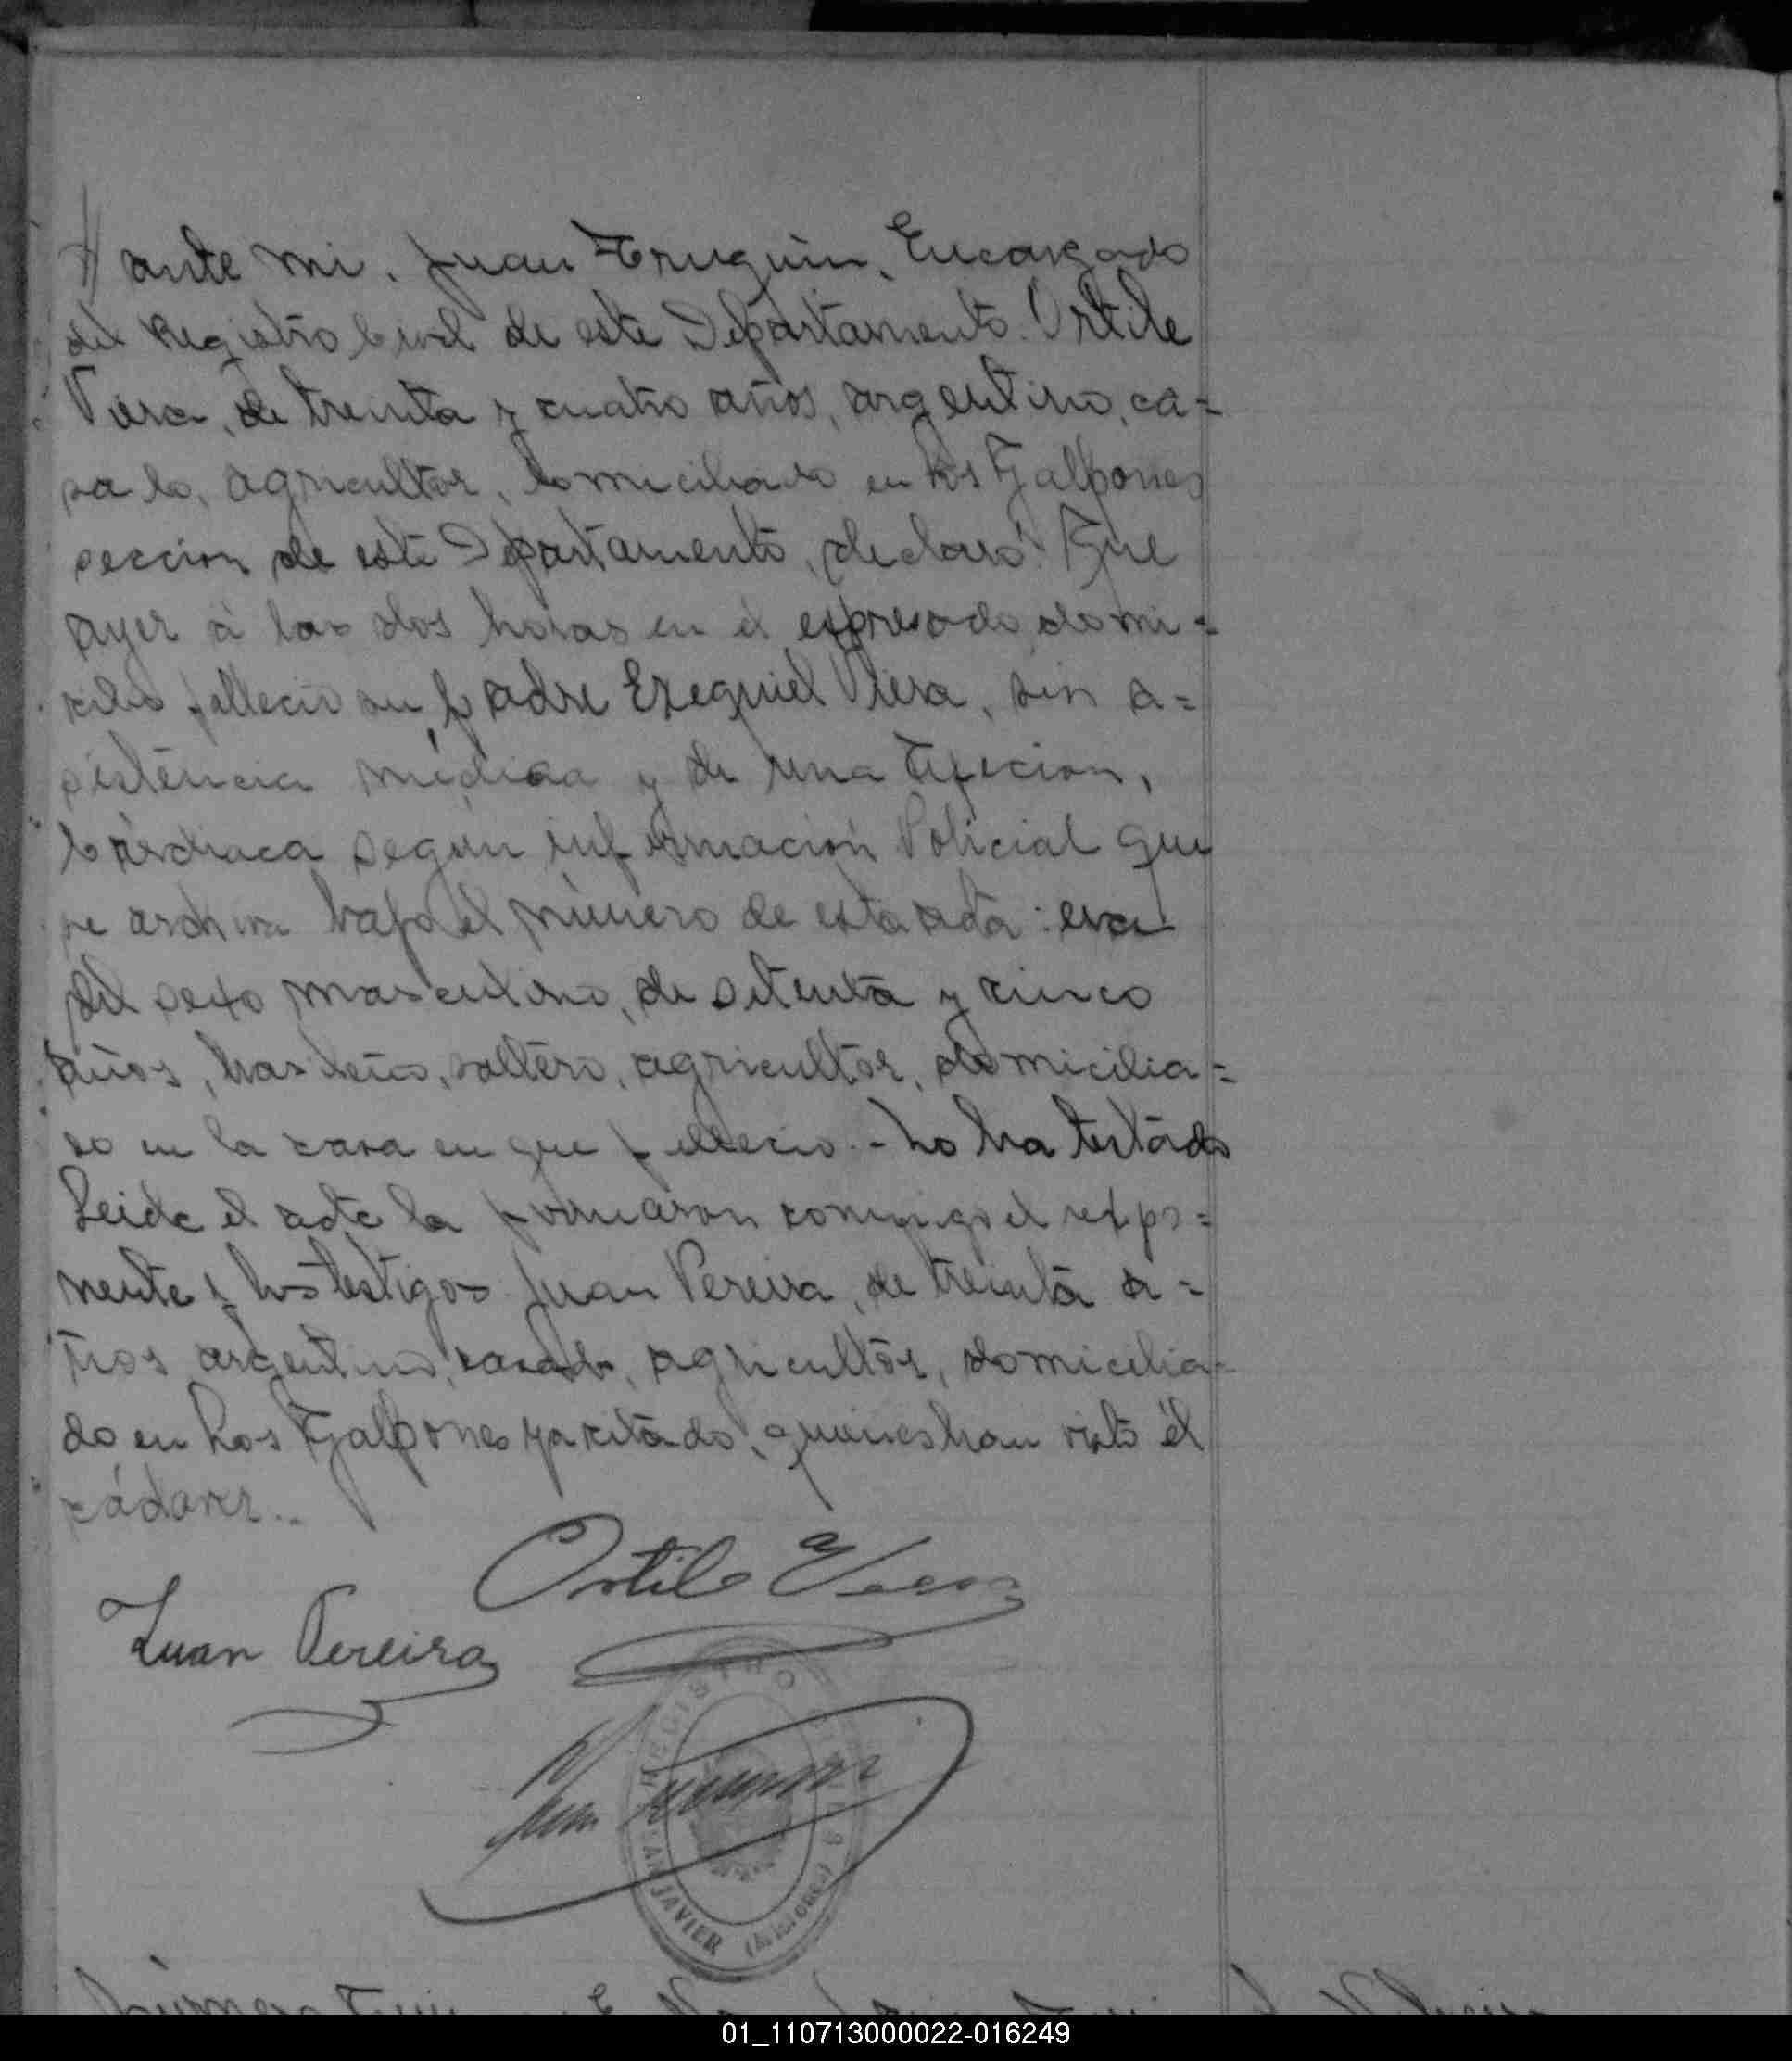 ante mi, Juan Truquin, Encargado
del Registro Civil de este Departamento: Ortile
Viera, de treinta y cuatro años, argentino, ca=
sado, agricultor, domiciliado en Los Galpones
seccion de este Departamento, declaró: Que
ayer á las dos horas en el espresado domi=
cilio fallecio su padre Ezequiel Viera, sin a=
sistencia médica y de una afeccion,
Cardiaca segun informacion Policial que
se archiva bajo el número de esta acta: era
del sexo masculino, de setenta y cinco
años, brasileño, soltero, agricultor, domicilia=
do en la casa en que fallecio.- No ha testado
Leida el acta la firmaron conmigo el expo=
nente y los testigos Juan Pereira, de treinta a=
ños argentino, casado, agricultor, domicilia=
do en Los Galpones ya citado, quienes han visto él
cádaver..
Ortile Viera
Juan Pereira
REGISTRO CIVIL
SAN JAVIER (Misiones)
01_110713000022-016249